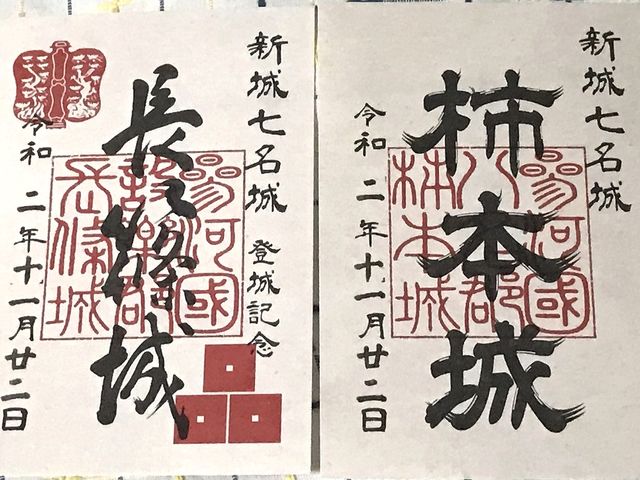 新城七名城 登城記念
長篠城
令和二年十一月廿二日
參河國
新城七名城
柿本城
令和二年十一月廿二日
參河國
八名郡
柿本城